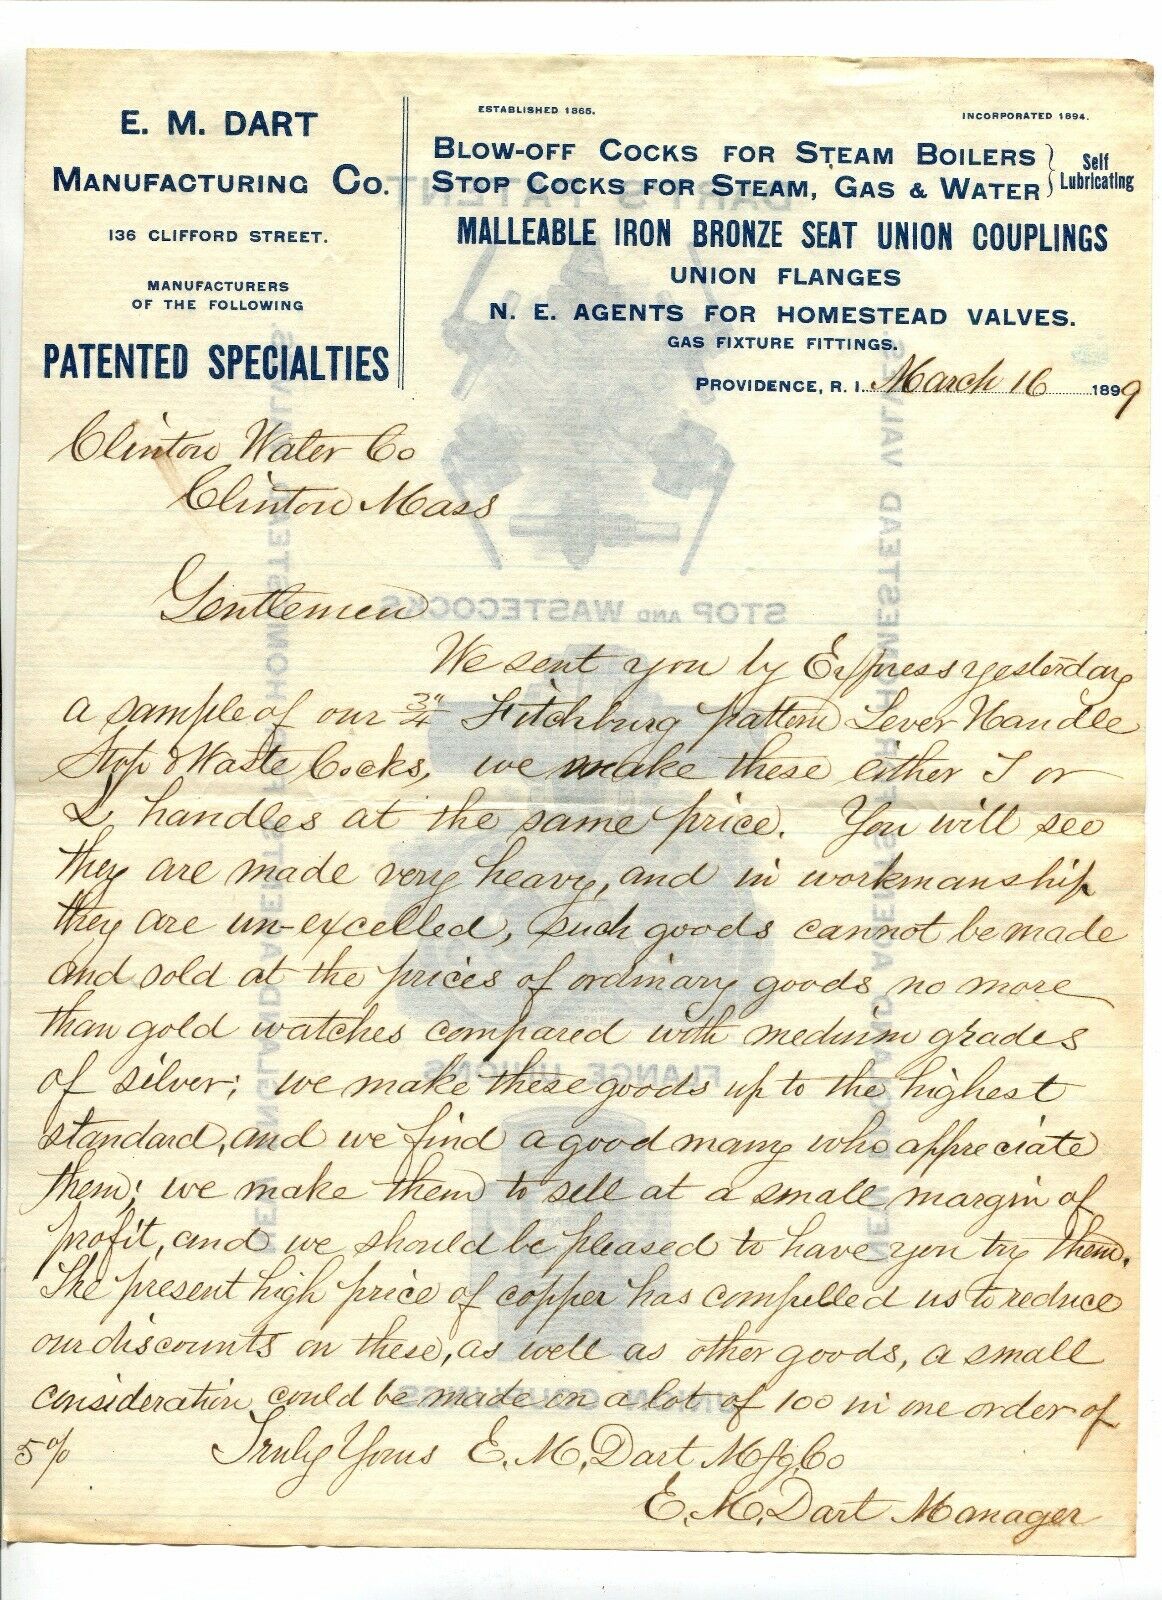 E. M. DART
MANUFACTURING CO.
136 CLIFFORD STREET.
MANUFACTURERS
OF THE FOLLOWING
PATENTED SPECIALTIES
ESTABLISHED 1865.
INCORPORATED 1894.
BLOW-OFF COCKS FOR STEAM BOILERS
STOP COCKS FOR STEAM, GAS & WATER
Self
Lubricating
MALLEABLE IRON BRONZE SEAT UNION COUPLINGS
UNION FLANGES
N. E. AGENTS FOR HOMESTEAD VALVES.
GAS FIXTURE FITTINGS.
PROVIDENCE, R. I. March 16 1899
Clinton Water Co
Clinton Mass
Gentlemen
We sent you by Express yesterday
a sample of our 3/4" Fitchburg pattern Lever Handle
Stop & Waste Cocks, we make these either T or
L handles at the same price. You will see
they are made very heavy, and in workmanship
they are un-excelled, such goods cannot be made
and sold at the prices of ordinary goods no more
than gold watches compared with medium grades
of silver; we make these goods up to the highest
standard, and we find a good many who appreciate
them; we make them to sell at a small margin of
profit, and we should be pleased to have you try them.
The present high price of copper has compelled us to reduce
our discounts on these, as well as other goods, a small
consideration could be made on a lot of 100 in one order of
5% Truly Yours E. M. Dart Mfg. Co
E. M. Dart Manager
DART'S PATENT
STOP AND WASTECOCKS
FLANGE UNIONS
UNION COUPLINGS
NEW ENGLAND AGENTS FOR HOMESTEAD VALVES
NEW ENGLAND AGENTS FOR HOMESTEAD VALVES